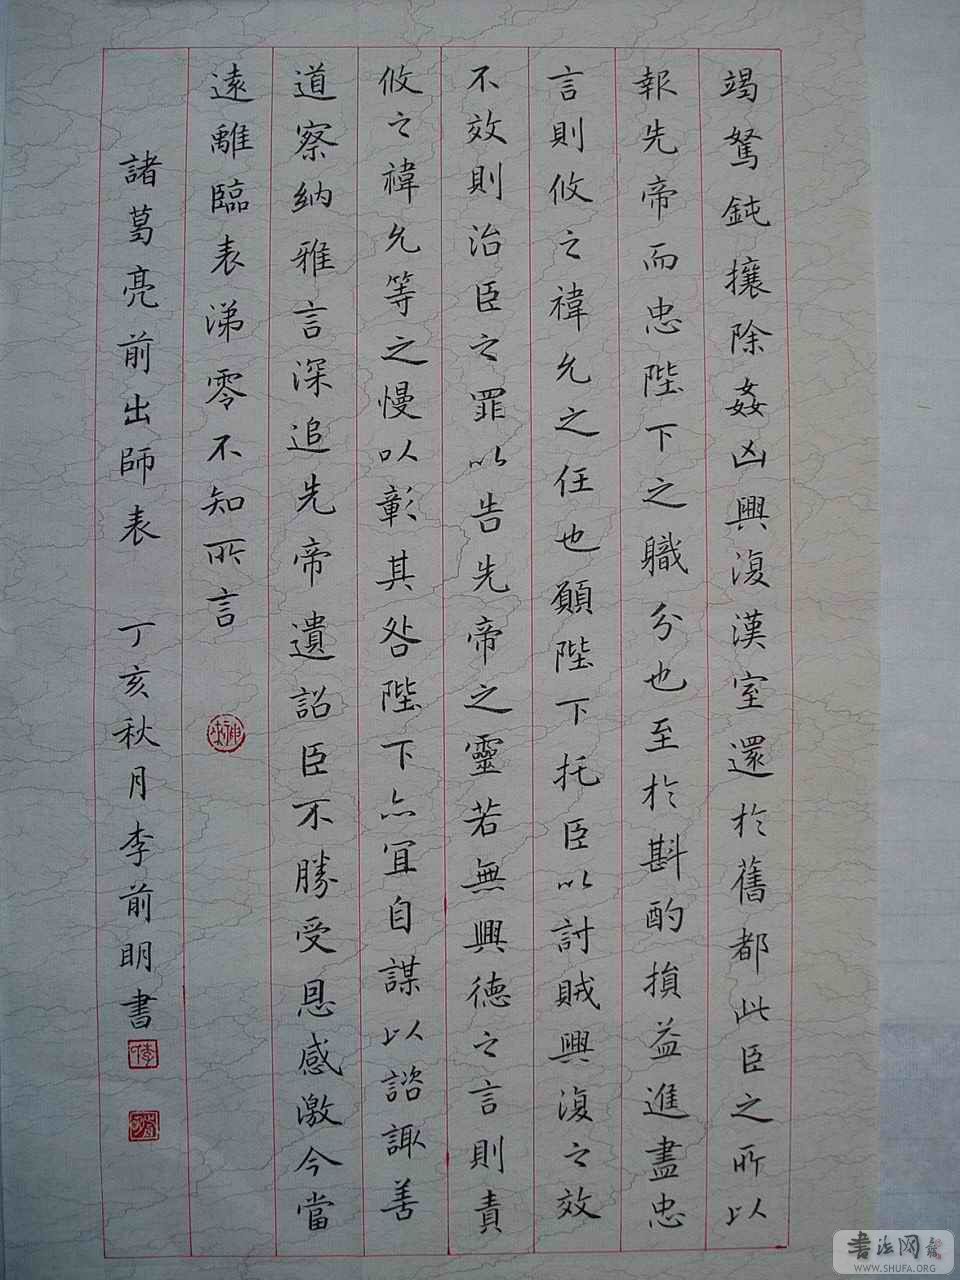 竭駑鈍攘除姦凶興復漢室還於舊都此臣之所以
報先帝而忠陛下之職分也至於斟酌損益進盡忠
言則攸之禕允之任也願陛下托臣以討賊興復之效
不效則治臣之罪以告先帝之靈若無興德之言則責
攸之禕允等之慢以彰其咎陛下亦宜自謀以諮諏善
道察納雅言深追先帝遺詔臣不勝受恩感激今當
遠離臨表涕零不知所言
諸葛亮前出師表 丁亥秋月李前明書
書法网
WWW.SHUFA.ORG